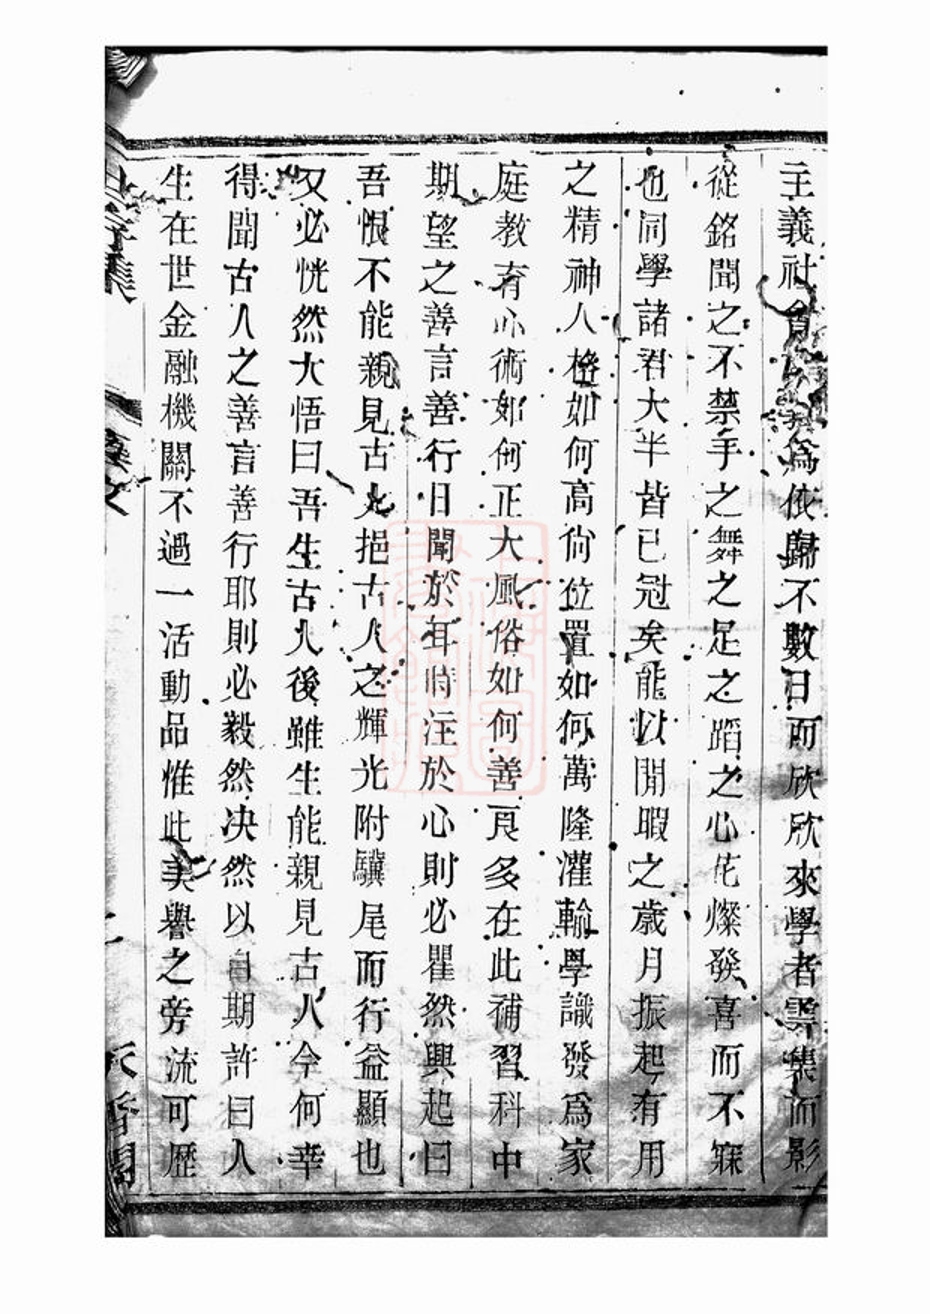 主義社爲依歸不數日而欣欣來學者雲集而影
從銘聞之不禁手之舞之足之蹈之心花燦發喜而不寐
也同學諸君大半皆已冠矣能以閒暇之歲月振起有用
之精神人格如何高尙位置如何萬隆灌輸學識發爲家
庭教育心術如何正大風俗如何善良多在此補習科中
期望之善言善行日聞於耳時注於心則必瞿然興起曰
吾恨不能親見古人挹古人之輝光附驥尾而行益顯也
又必恍然大悟曰吾生古人後雖生能親見古人今何幸
得聞古人之善言善行耶則必毅然決然以自期許曰人
生在世金融機關不過一活動品惟此美譽之旁流可歷